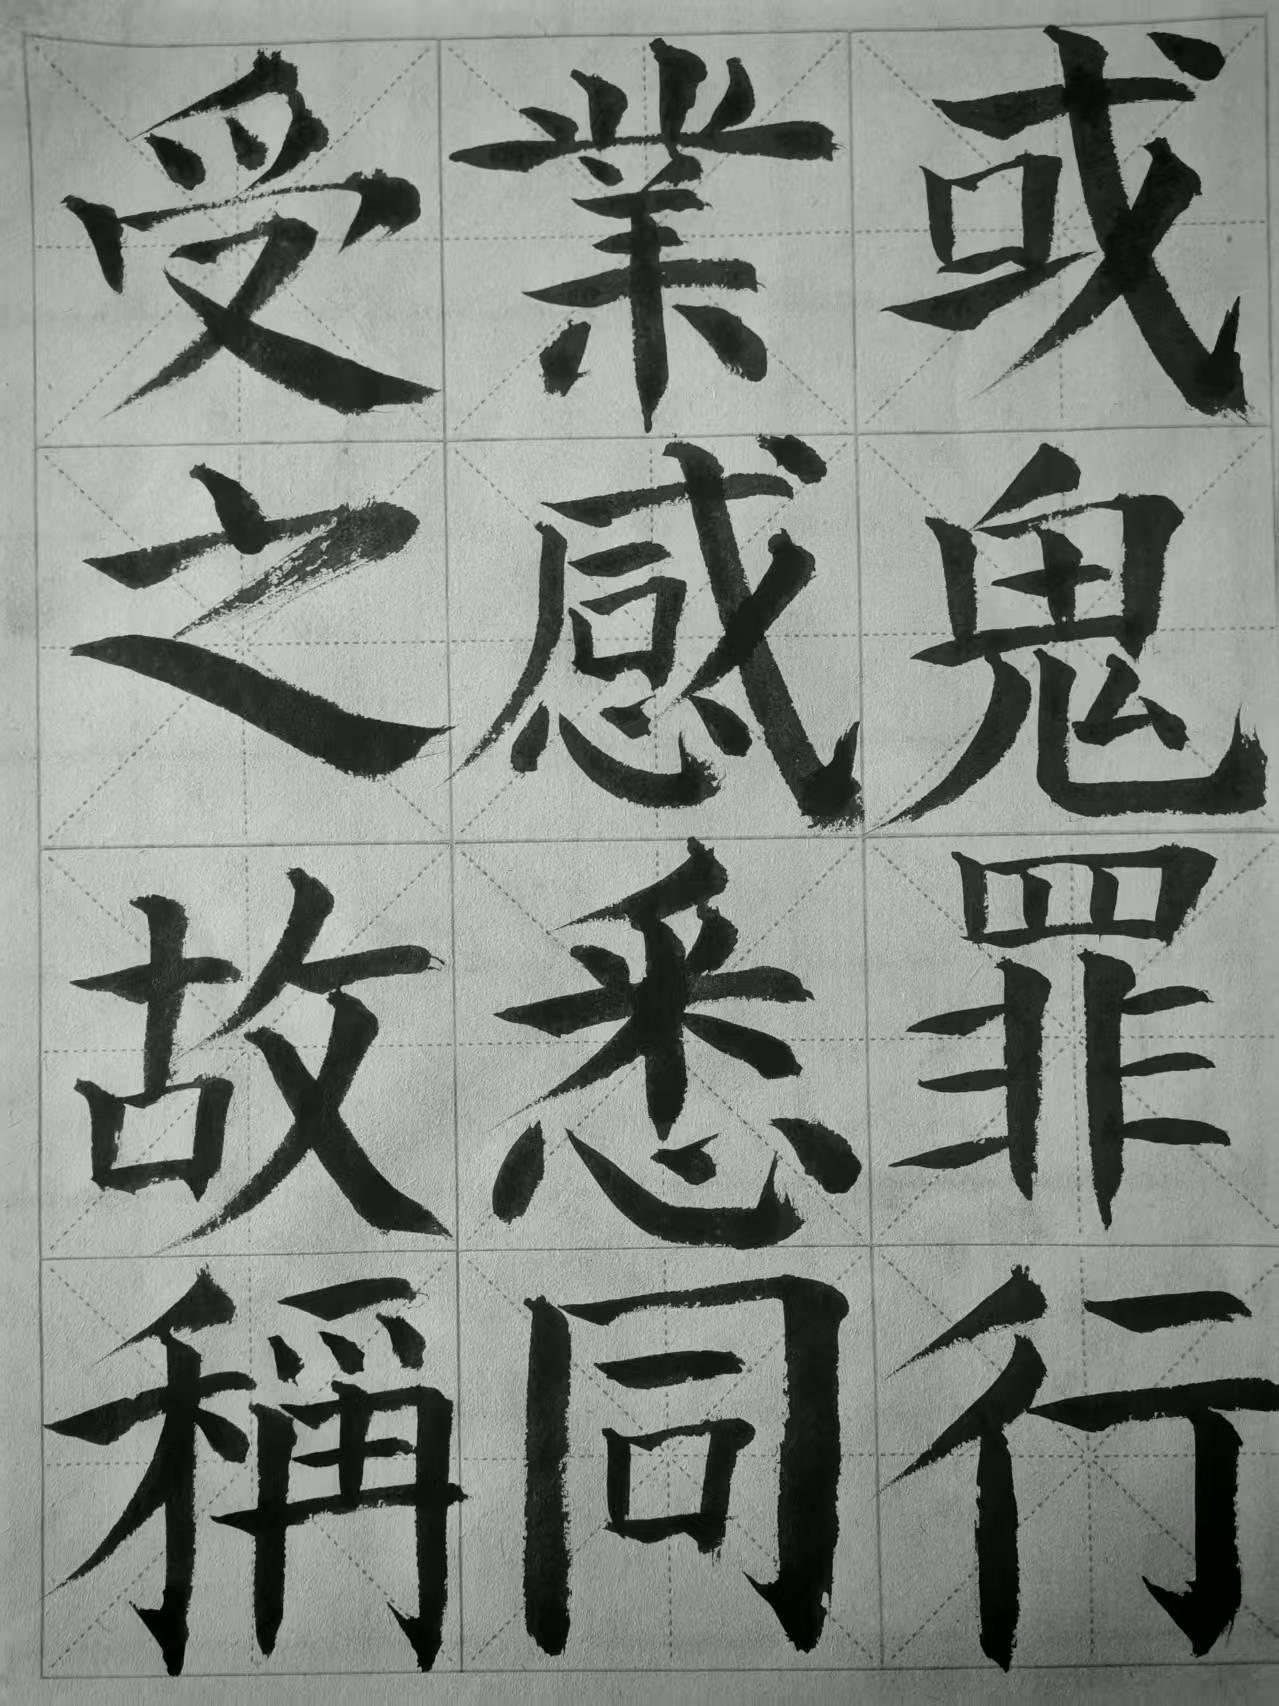 或鬼罪行
業感悉同
受之故稱